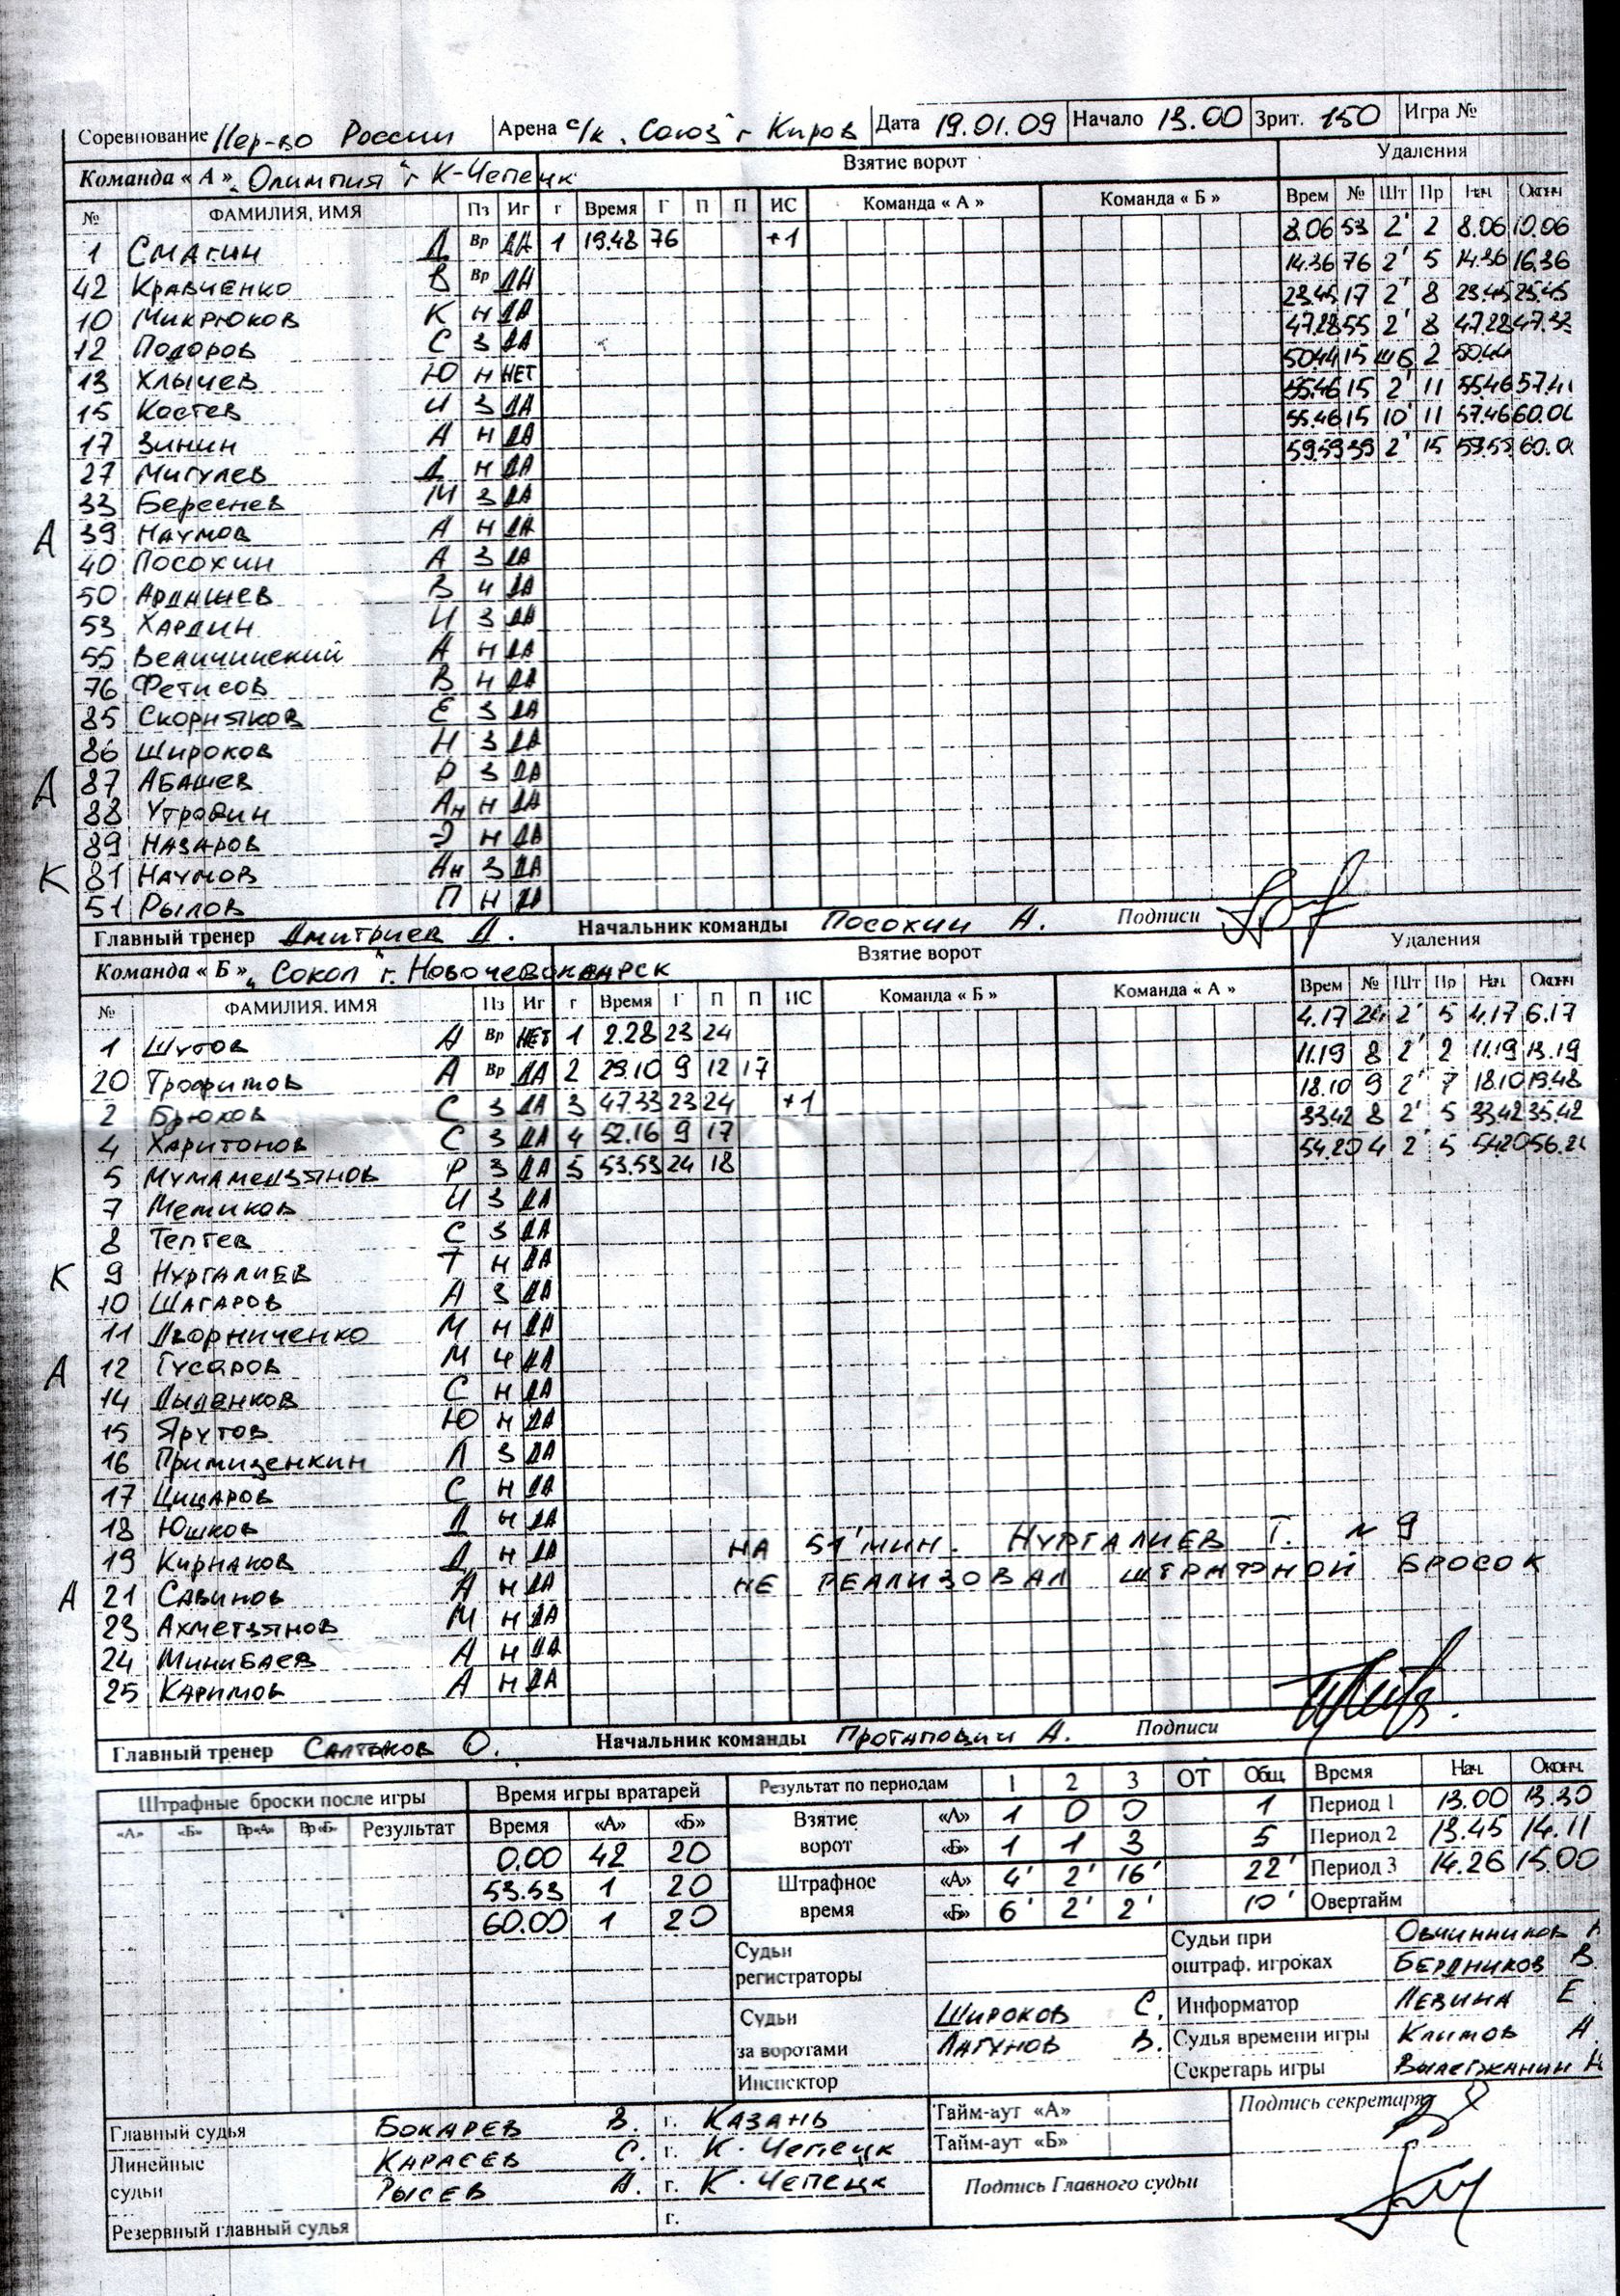 Соревнование Пер-во России Арена с/к "Союз" г Киров Дата 19.01.09 Начало 13.00 Зрит. 150 Игра №
Команда « А » "Олимпия" г К-Чепецк Взятие ворот Удаления
№ ФАМИЛИЯ, ИМЯ Пз Иг г Время Г П П ИС Команда « А » Команда « Б » Врем № Шт Пр Нач. Оконч
1 Смагин Д Вр ДА 1 19.48 76 +1 8.06 53 2' 2 8.06 10.06
42 Кравченко В Вр ДА 14.36 76 2' 5 14.36 16.36
10 Микрюков К Н ДА 23.45 17 2' 8 23.45 25.45
12 Подоров С З ДА 47.28 55 2' 8 47.28 47.33
13 Хлычев Ю Н НЕТ 50.44 15 ШБ 2 50.44
15 Костев И З ДА 55.46 15 2' 11 55.46 57.4
17 Зинин А Н ДА 55.46 15 10' 11 57.46 60.00
27 Мигулев Д Н ДА 59.59 39 2' 15 59.59 60.0
33 Береснев М З ДА
А 39 Наумов А Н ДА
40 Посохин А З ДА
50 Ардашев В Н ДА
53 Хардин И З ДА
55 Величинский А Н ДА
76 Фетисов В Н ДА
85 Скорняков Е З ДА
86 Широков Н З ДА
А 87 Абашев Р З ДА
88 Утробин Ан Н ДА
89 Назаров Э Н ДА
К 81 Наумов Ан З ДА
51 Рылов П Н ДА
Главный тренер Дмитриев Д. Начальник команды Посохин А. Подписи
Команда « Б » "Сокол" г. Новочебоксарск Взятие ворот Удаления
№ ФАМИЛИЯ. ИМЯ Пз Иг г Время Г П П ИС Команда « Б » Команда « А » Врем № Шт Пр Нач. Оконч
1 Шутов А Вр НЕТ 1 2.28 23 24 4.17 24 2' 5 4.17 6.17
20 Трофимов А Вр ДА 2 29.10 9 12 17 11.19 8 2' 2 11.19 13.19
2 Брюков С З ДА 3 47.33 23 24 +1 18.10 9 2' 7 18.10 19.48
4 Харитонов С З ДА 4 52.16 9 17 33.42 8 2' 5 33.42 35.42
5 Мумамедзянов Р З ДА 5 53.53 24 18 54.20 4 2' 5 54.20 56.2
7 Мешков И З ДА
8 Тептев С З ДА
К 9 Нургалиев Т Н ДА
10 Шагаров А З ДА
11 Дворниченко М Н ДА
А 12 Гусаров М Н ДА
14 Дыденков С Н ДА
15 Ярутов Ю Н ДА
16 Примиценкин Л З ДА
17 Цицаров С Н ДА
18 Юшков Д Н ДА НА 51' МИН. НУРГАЛИЕВ Т. № 9
19 Кирнаков Д Н ДА НЕ РЕАЛИЗОВАЛ ШТРАФНОЙ БРОСОК
А 21 Савинов А Н ДА
23 Ахметзянов М Н ДА
24 Минибаев А Н ДА
25 Каримов А Н ДА
Главный тренер Салтыков О. Начальник команды Протапович А. Подписи
Штрафные броски после игры Время игры вратарей Результат по периодам 1 2 3 ОТ Общ. Время Нач. Оконч.
«А» «Б» Вр«А» Вр«Б» Результат Время «А» «Б» Взятие ворот «А» 1 0 0 1 Период 1 13.00 13.30
0.00 42 20 «Б» 1 1 3 5 Период 2 13.45 14.11
53.53 1 20 Штрафное время «А» 4' 2' 16' 22' Период 3 14.26 15.00
60.00 1 20 «Б» 6' 2' 2' 10' Овертайм
Судьи регистраторы Судьи при оштраф. игроках Овчинников
Бердников В.
Судьи за воротами Широков С. Информатор Левина Е.
Лагунов В. Судья времени игры Климов А.
Инспектор Секретарь игры Вылегжанин Н
Главный судья Бокарев В. г. Казань Тайм-аут «А» Подпись секретаря
Линейные судьи Карасев С. г. К-Чепецк Тайм-аут «Б»
Рысев А. г. К-Чепецк Подпись Главного судьи
Резервный главный судья г.